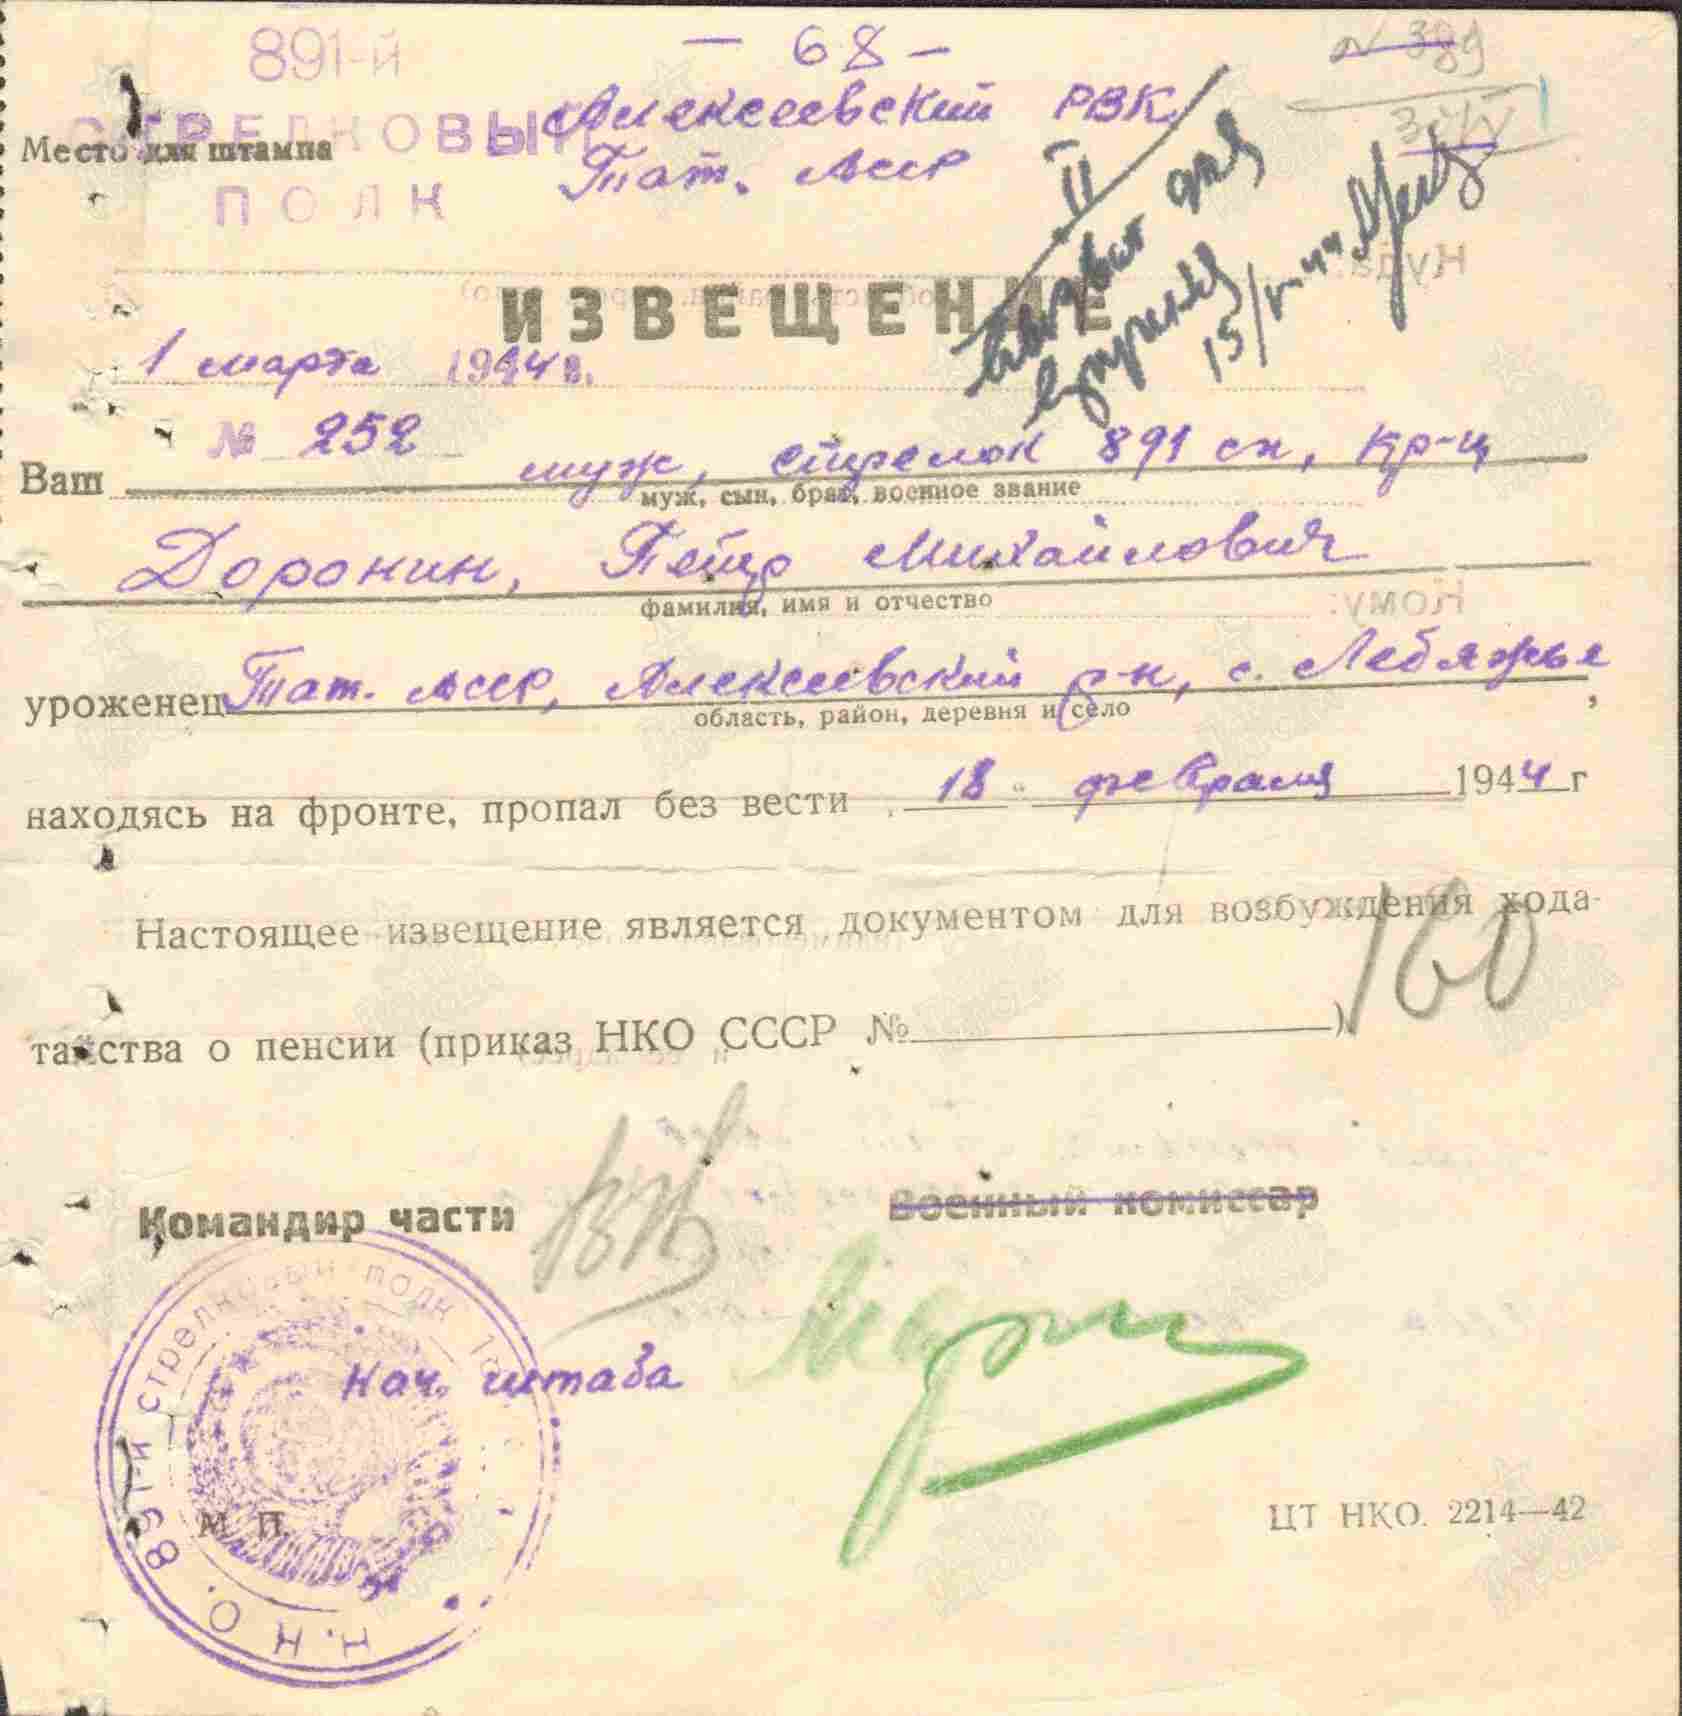 891-й
— 68 —
№ 389
Алексеевский РВК
СТРЕЛКОВЫЙ
Место для штампа
Тат. АССР
ПОЛК
II
15/
Куда:
ИЗВЕЩЕНИЕ
1 марта 1944 г.
№ 252
Ваш муж, стрелок 891 сп, кр-ц
муж, сын, брат, военное звание
Доронин, Петр Михайлович
фамилия, имя и отчество
Кому:
уроженец Тат. АССР, Алексеевский р-н, с. Лебяжье,
область, район, деревня и село
находясь на фронте, пропал без вести „18“ февраля 1944 г
Настоящее извещение является документом для возбуждения хода-
тайства о пенсии (приказ НКО СССР № )
160
Командир части
Военный комиссар
Нач. штаба
М. П.
891-й стрелковый полк
Н.К.О.
ЦТ НКО. 2214—42